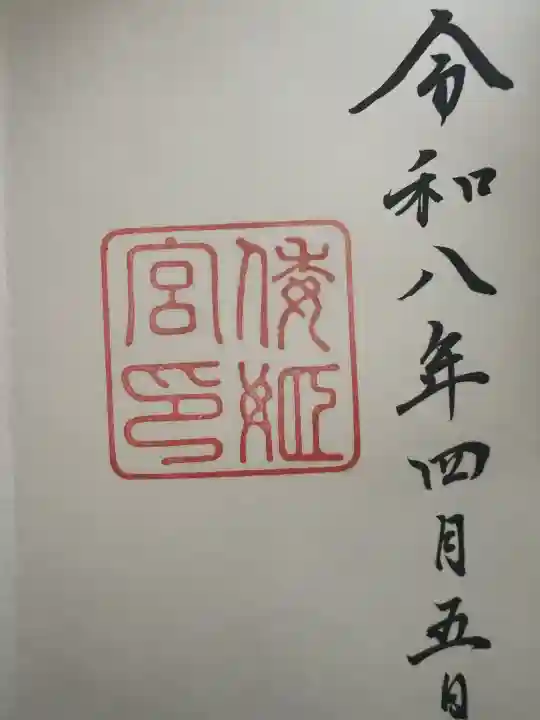 令和八年四月五日
倭姫
宮印